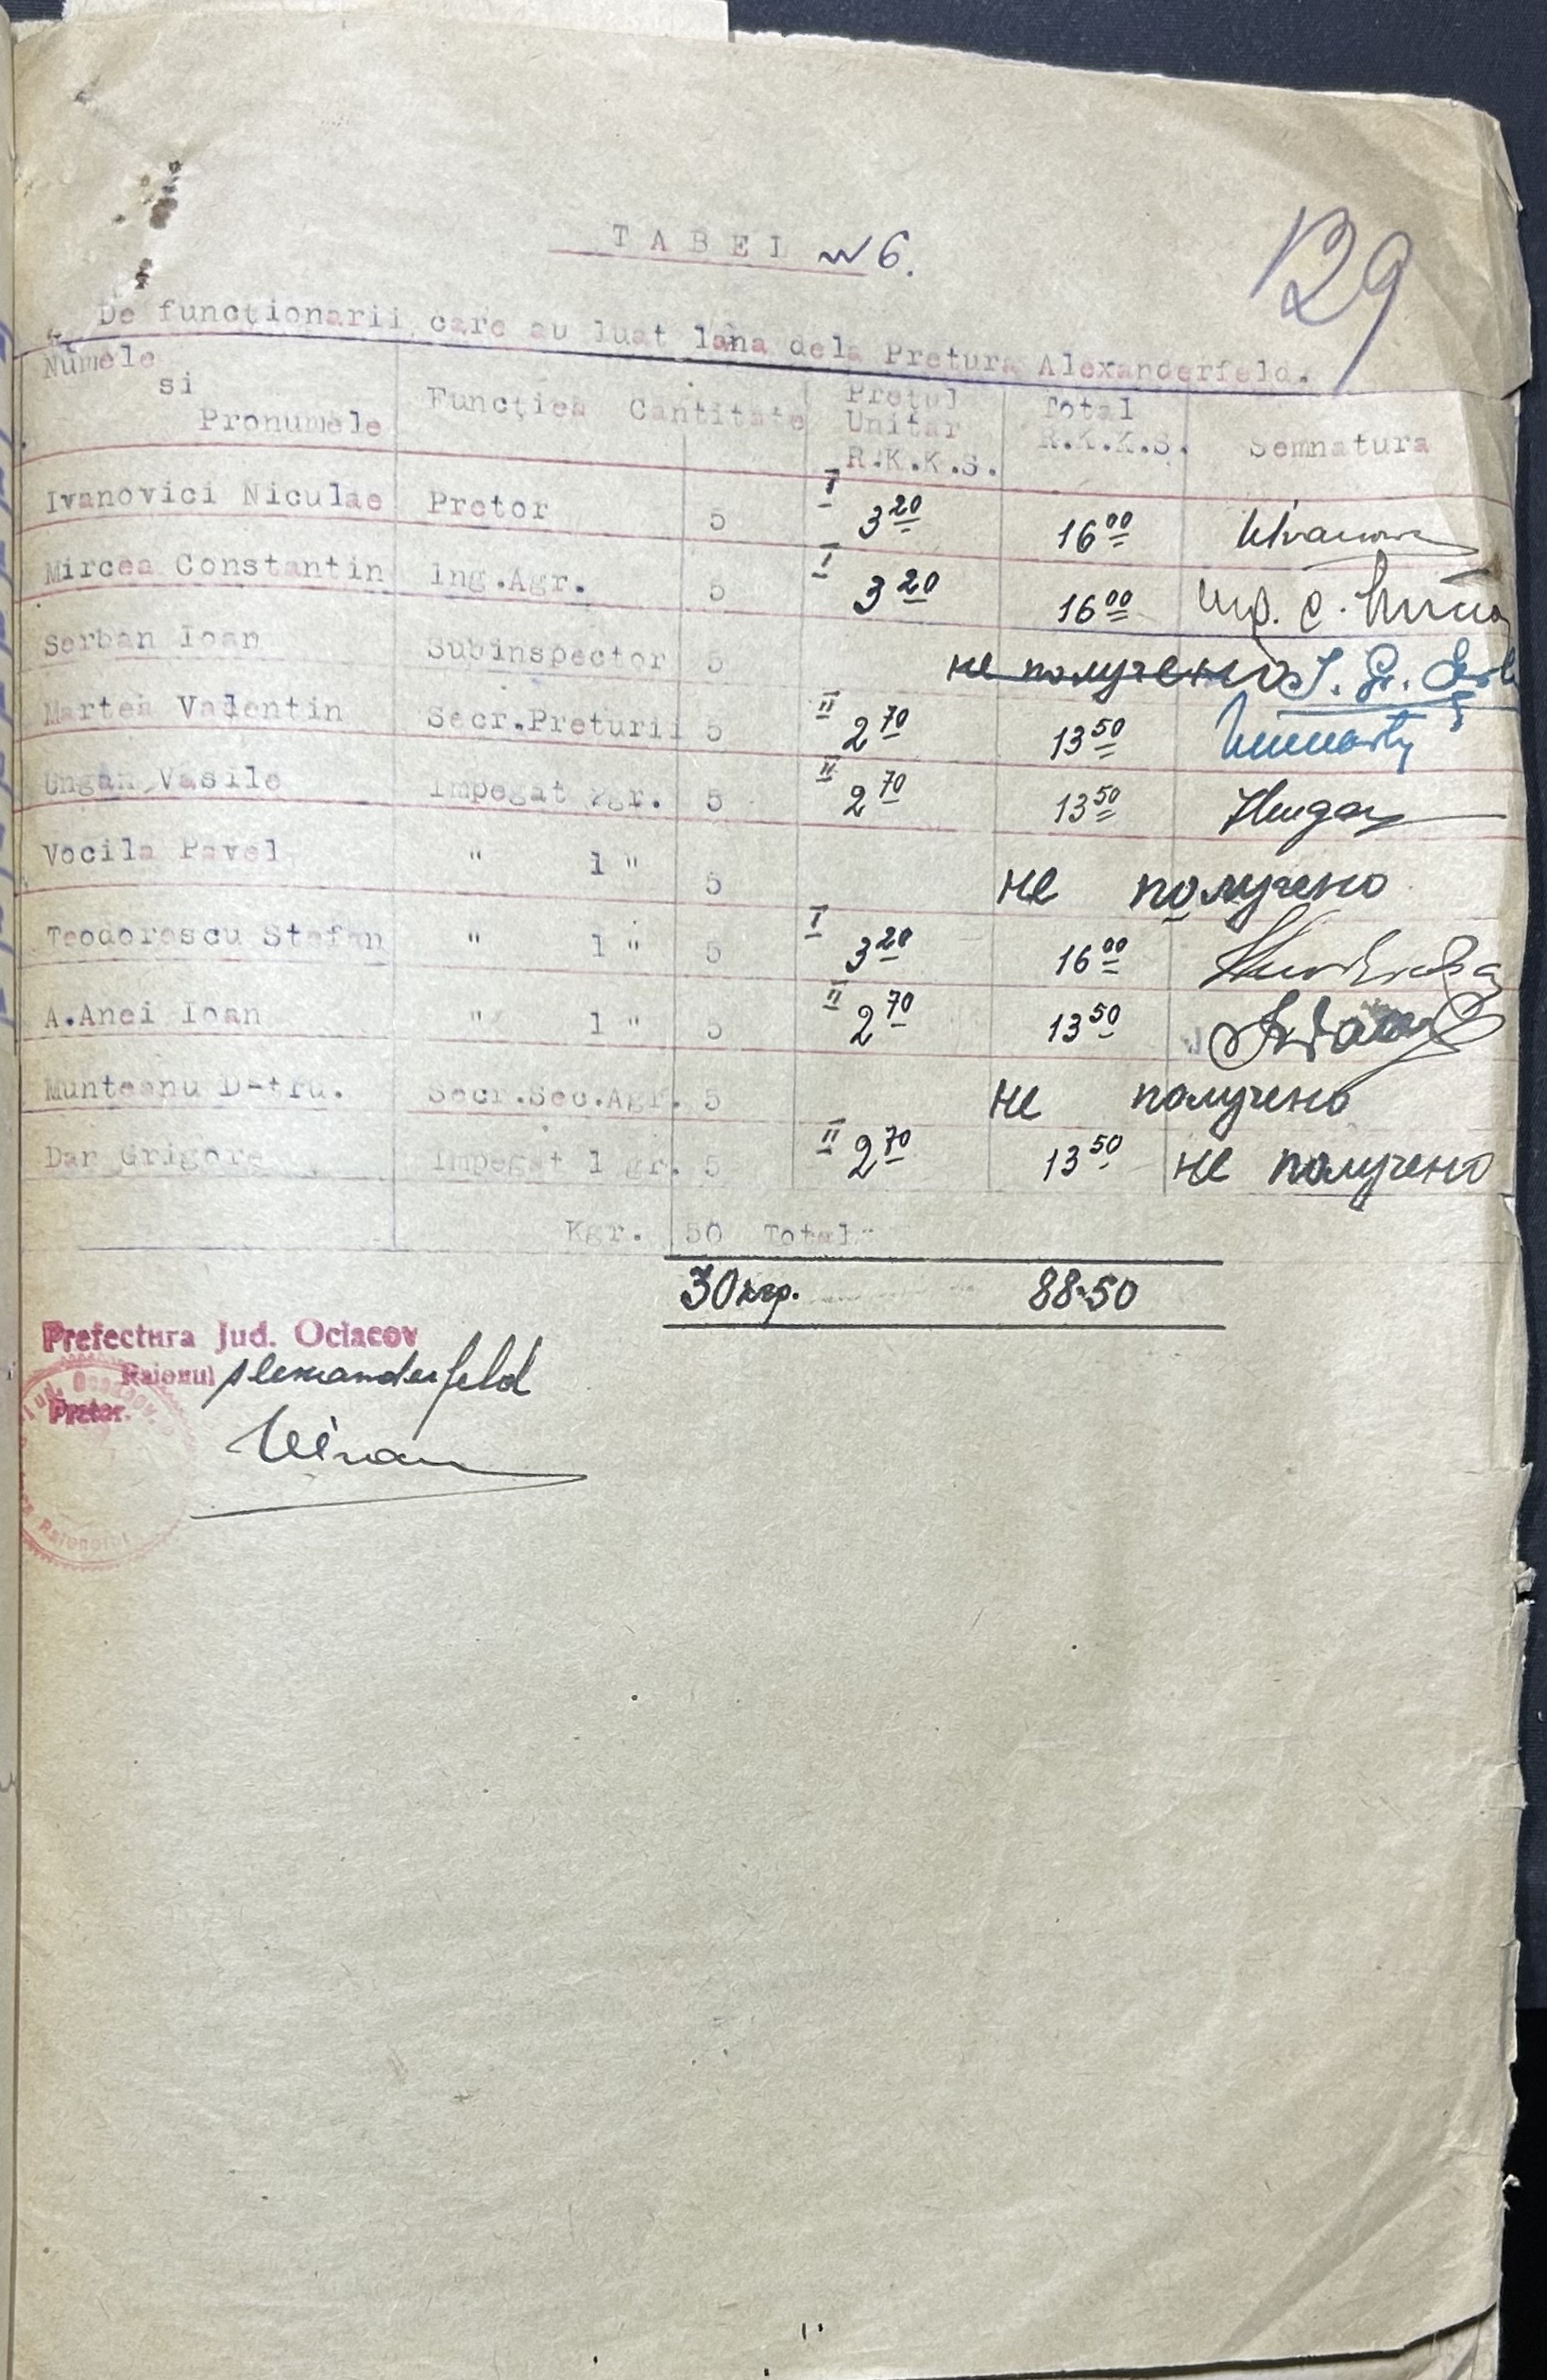 129
TABEL № 6.
De funcţionarii care au luat lâna dela Pretura Alexanderfeld.
Numele si Pronumele Funcţiea Cantitate Preţul Unitar R.K.K.S. Total R.K.K.S. Semnatura
Ivanovici Niculae Pretor 5 I 3 20 16 00
Mircea Constantin Ing.Agr. 5 I 3 20 16 00
Serban Ioan Subinspector 5 не получено
Martea Valentin Secr.Preturii 5 II 2 70 13 50
Ungan Vasile Impegat gr. 5 II 2 70 13 50
Vocila Pavel " 1 " 5 не получено
Teodorescu Stefan " 1 " 5 I 3 20 16 00
A.Anei Ioan " 1 " 5 II 2 70 13 50
Munteanu D-tru. Secr.Sec.Agr. 5 не получено
Dan Grigore Impegat 1 gr. 5 II 2 70 13 50 не получено
Kgr. 50 Total
30 кгр. 88-50
Prefectura Jud. Ociacov
Raionul Alexanderfeld
Pretor.